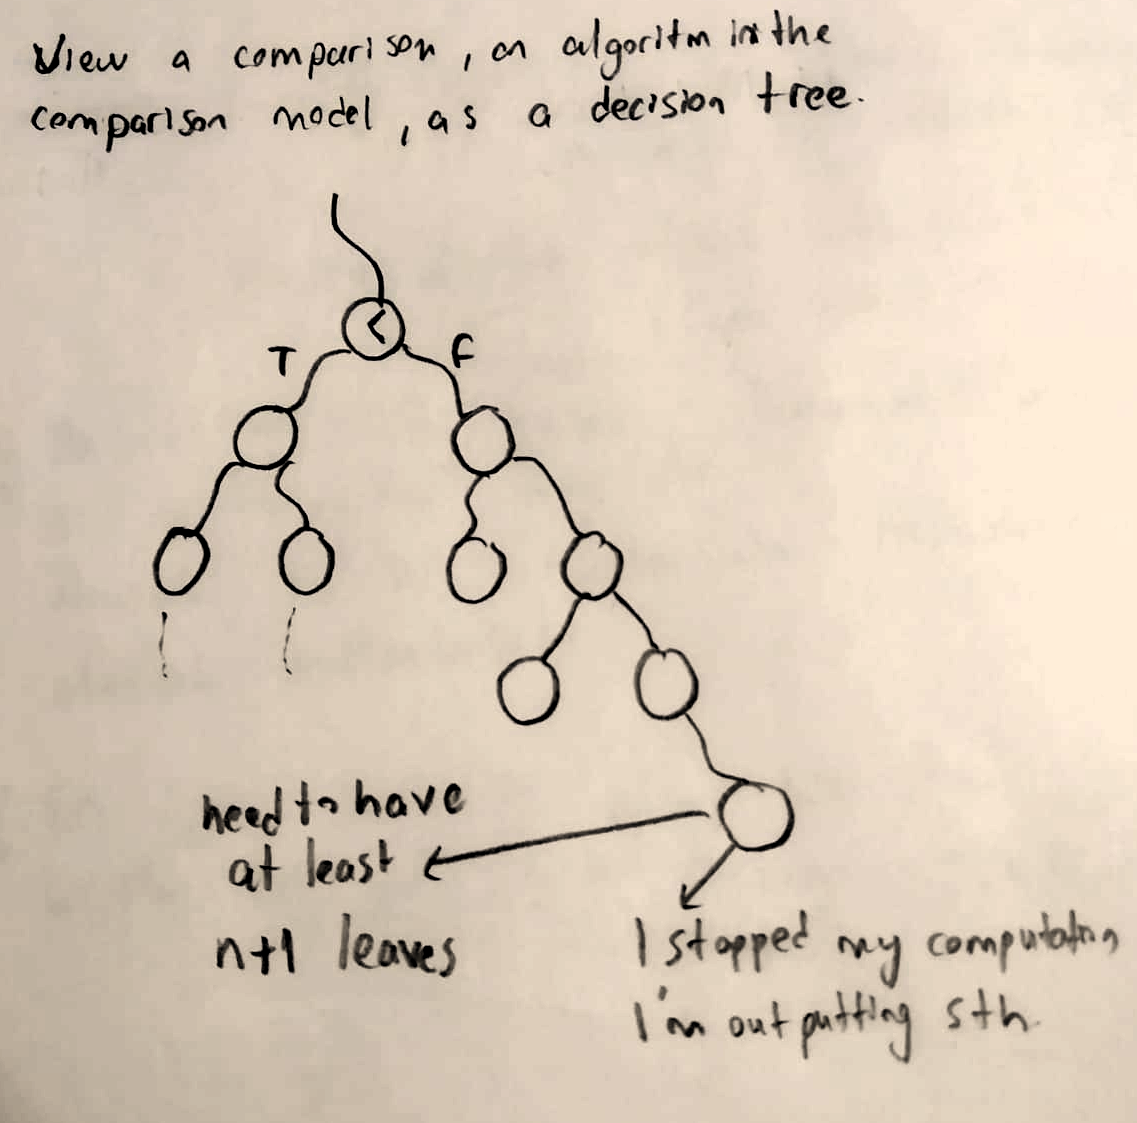 View a comparison, an algoritm in the
comparison model, as a decision tree.
<
T F
need to have
at least
n+1 leaves
I stopped my computation
I'm outputting sth.